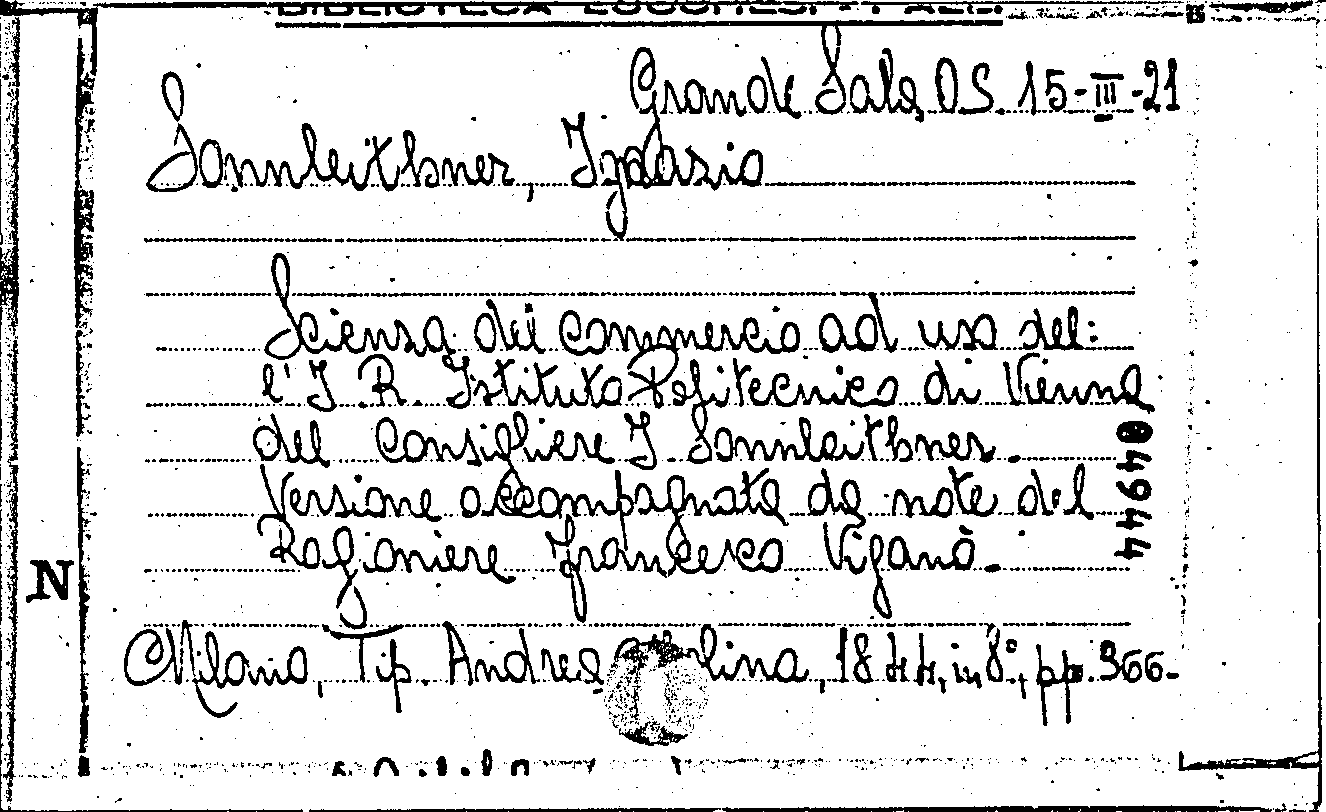 Grande Sala OS. 15-III-21
Sonnleithner, Ignazio
Scienza del commercio ad uso del:
l'I. R. Istituto Politecnico di Vienna
del Consigliere I. Sonnleithner.
Versione accompagnata da note del
Ragioniere Francesco Viganò.
Milano, Tip. Andrea 1844, in 8°, pp. 366.
049444
N